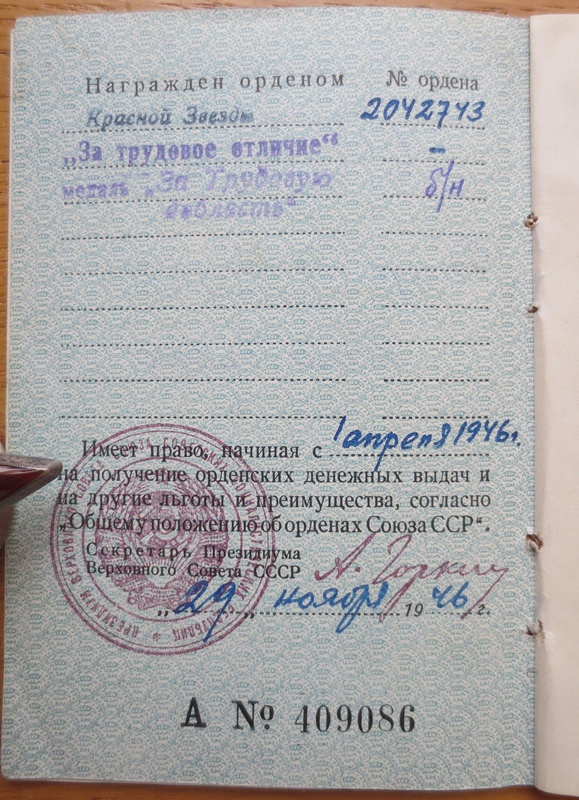 Награжден орденом № ордена
Красной Звезды 2042743
„За трудовое отличие“ –
медаль „За Трудовую б/н
доблесть“
Имеет право, начиная с 1 апреля 1946 г.
на получение орденских денежных выдач и
на другие льготы и преимущества, согласно
„Общему положению об орденах Союза ССР“.
Секретарь Президиума
Верховного Совета СССР А. Горкин
„29„ ноября 1946 г.
А № 409086